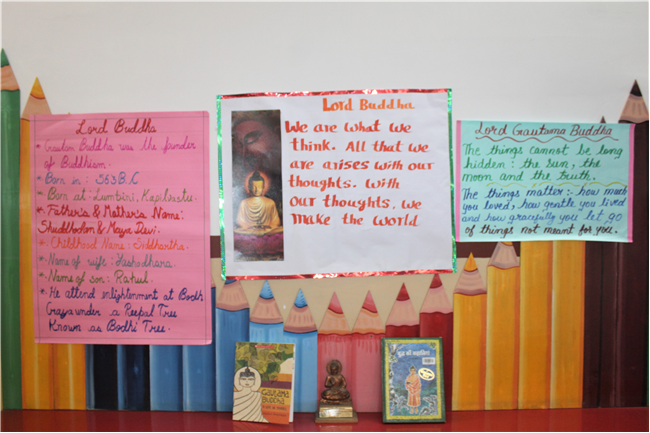 Lord Buddha
* Gautam Buddha was the founder
of Buddhism.
* Born in : 563 B.C
* Born at : Lumbini, Kapilvastu.
* Father's & Mother's Name:
Shuddhodhan & Maya Devi.
* Childhood Name : Siddhartha.
* Name of wife : Yashodhara.
* Name of son : Rahul.
* He attend enlightenment at Bodh
Gaya under a Peepal Tree
Known as Bodhi Tree.
Lord Buddha
We are what we
think. All that we
are arises with our
thoughts. With
our thoughts, we
make the world
Lord Gautama Buddha
The things cannot be long
hidden : the sun, the
moon and the truth.
The things matter:- how much
you loved, how gentle you lived
and how gracefully you let go
of things not meant for you.
Gautama
Buddha